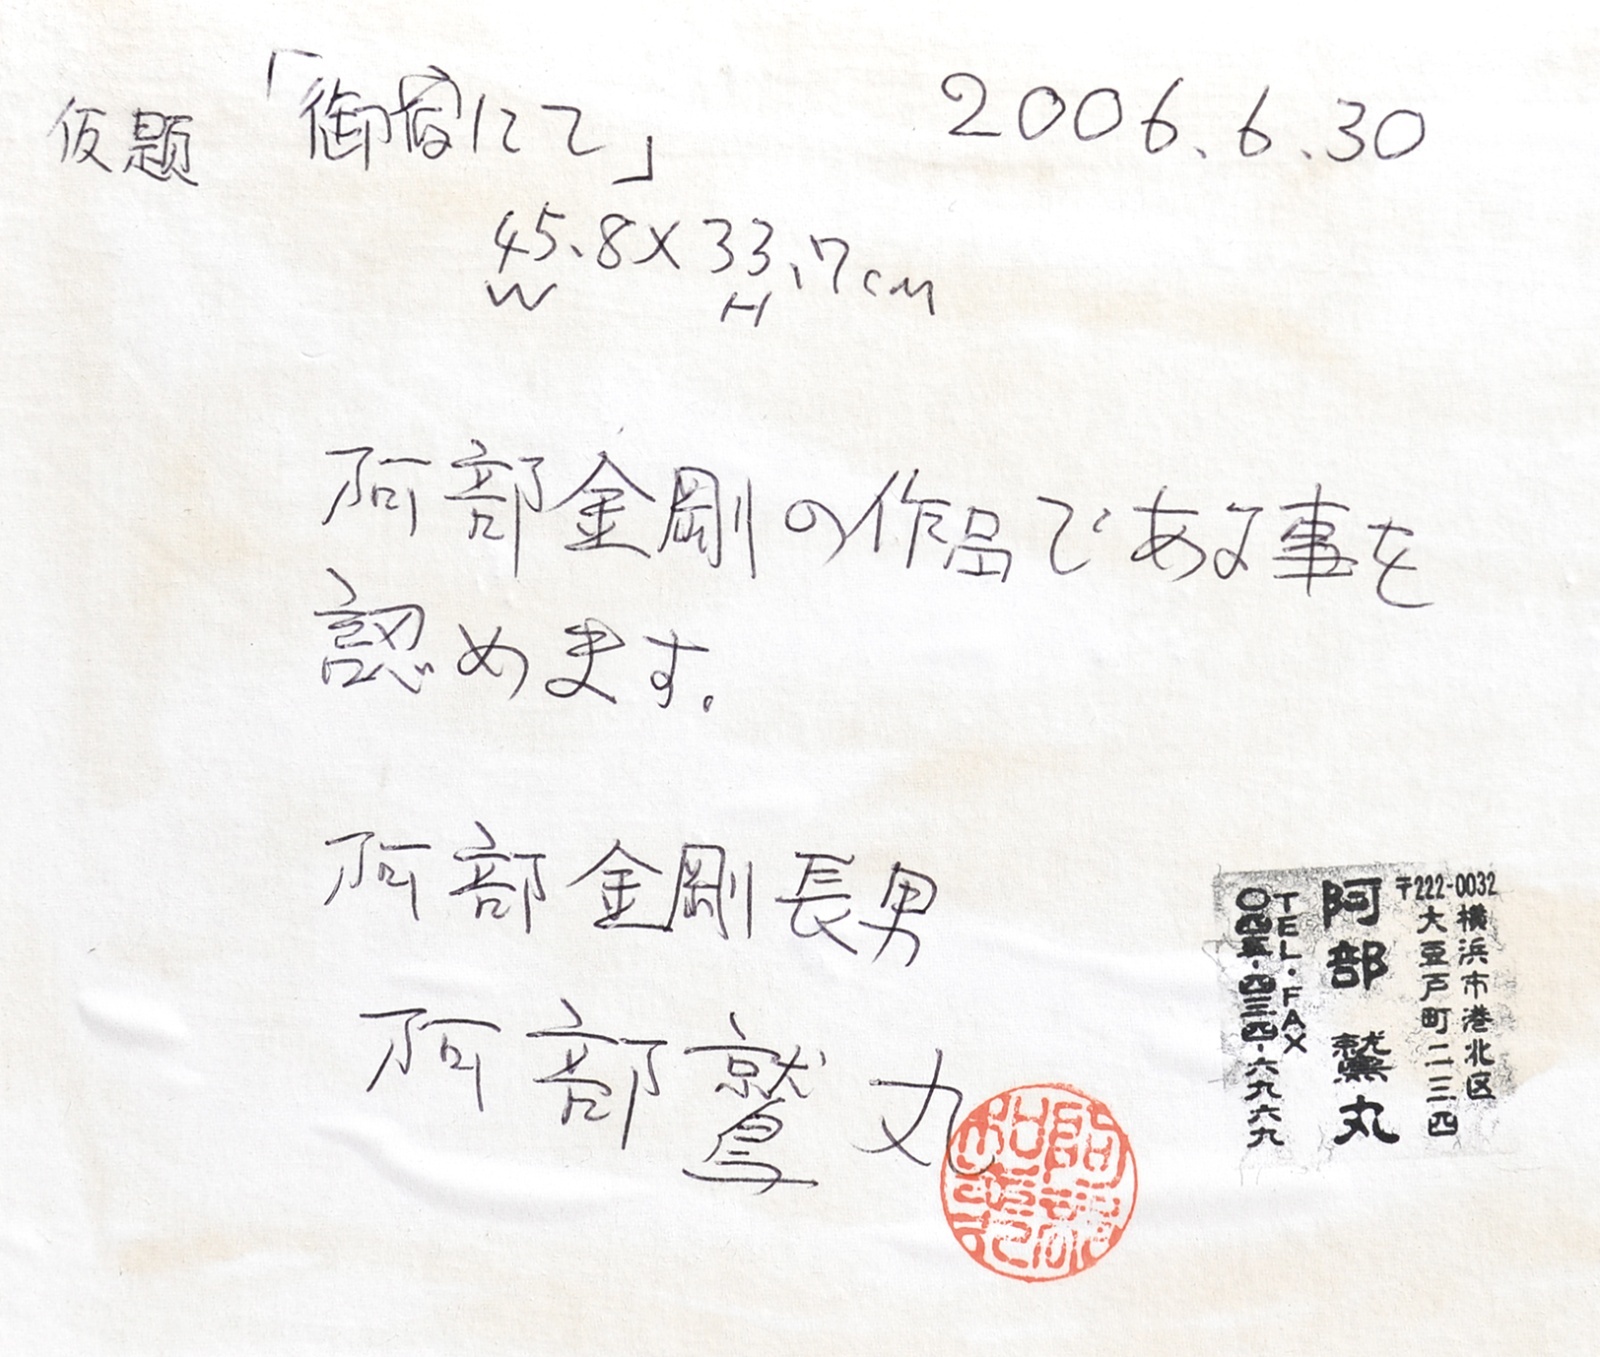 仮題 「御宿にて」 2006.6.30
45.8×33.7cm
W H
阿部金剛の作品である事を
認めます.
阿部金剛長男
阿部鷲丸
〒222-0032
横浜市港北区
大豆戸町二三四
阿部 鷲丸
TEL・FAX
〇四五・四三四・六九六九
阿部